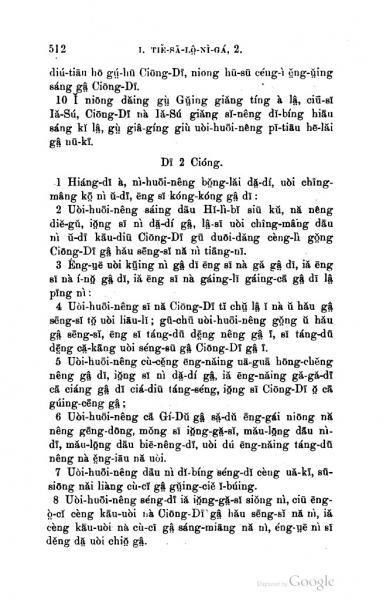 512 I. TIĔ-SĂ-LŎ̤-NÌ-GÁ, 2.
diú-tiāu hō gṳ́-hū Ciōng-Dī, niong hū-sū céng-ì ĕ̤ng-ṳ̆ing
sáng gâ̤ Ciōng-Dī.
10 Ī niōng dăing gṳ̀ Gṳ̆ing giăng tíng à lâ̤, ciū-sī
Iă-Sú, Ciōng-Dī nà Iă-Sú giăng sī-nêng dī-bíng hiău
sáng kĭ lâ̤, gṳ̀ giâ-gíng giù uòi-huōi-nêng pī-tiāu hē-lăi
gâ̤ nū-kī.
Dī 2 Cióng.
1 Hiáng-dī à, nì-huōi-nêng bŏ̤ng-lăi dā̤-dí, uòi chīng-
mâng kŏ̤ nì ŭ-dī, ĕng sī kóng-kóng gâ̤ dī :
2 Uòi-huōi-nêng săing dău Hī-lì-bī siŭ kŭ, nă nêng
diĕ-gú, iŏ̤ng sī nì dā̤-dí gâ̤, lâ̤-sī uòi chīng-mâng dău
nì ŭ-dī kău-diŭ Ciōng-Dī gŭ duōi-dăng cèng-lì gŏ̤ng
Ciōng-Dī gâ̤ hău sĕng-sī nă nì tiăng-nī.
3 Ĕng-yĕ uòi kṳ̄ing nì gâ̤ dī ĕng sī nă gă gâ̤ dī, iă ĕng
sī nă í-nŏ̤ gâ̤ dī, iă ĕng sī nă gáing-lī gáing-că gâ̤ dī lâ̤
pīng nì :
4 Uòi-huōi-nêng sī nă Ciōng-Dī tī chṳ̆ lâ̤ ī nă ŭ hău gâ̤
sĕng-sī tŏ̤ uòi liāu-lī ; gū-chū uòi-huōi-nêng gŏ̤ng ŭ hău
gâ̤ sĕng-sī, ĕng sī táng-dū dĕ̤ng nêng gâ̤ ī, sī táng-dū
dĕ̤ng cā̤-kăng uòi séng-sū gâ̤ Ciōng-Dī gâ̤ ī.
5 Uòi-huōi-nêng cù-cĕ̤ng ĕng-năing uă-guă hōng-chĕ̤ng
nêng gâ̤ dī, iŏ̤ng sī nì dā̤-dí gâ̤, iă ĕng-năing gă-gă-dī
că ciáng gâ̤ dī ciă-diū táng-séng, iŏ̤ng sī Ciōng-Dī ŏ̤ că
gúing-cĕng gâ̤ ;
6 Uòi-huōi-nêng că Gí-Dŭ gâ̤ sā̤-dŭ ĕng-gái niōng nă
nêng gĕng-dōng, mŏng sī iŏ̤ng-gā̤-sī, mău-lō̤ng dău nì-
dī, mău-lō̤ng dău biĕ-nêng-dī, uòi dú ĕng-năing táng-dū
nêng nà ĕ̤ng-iău nă uòi.
7 Uòi-huōi-nêng dău nì dī-bíng séng-dī cèng uă-kī, sū-
siōng năi liàng cù-cī gâ̤ gṳ̆ing-ciĕ ī-búing.
8 Uòi-huōi-nêng séng-dī iă iŏ̤ng-gā̤-sī siōng nì, ciū ĕng-
ò̤-cī cèng kău-uòi nà Ciōng-Dī gâ̤ hău sĕng-sī nă nì, iă
cèng kău-uòi nà cù-cī gâ̤ sáng-miăng nă nì, éng-yĕ nì sī
dĕ̤ng dā̤ uòi chiŏ̤ gâ̤.
Digitized by Google